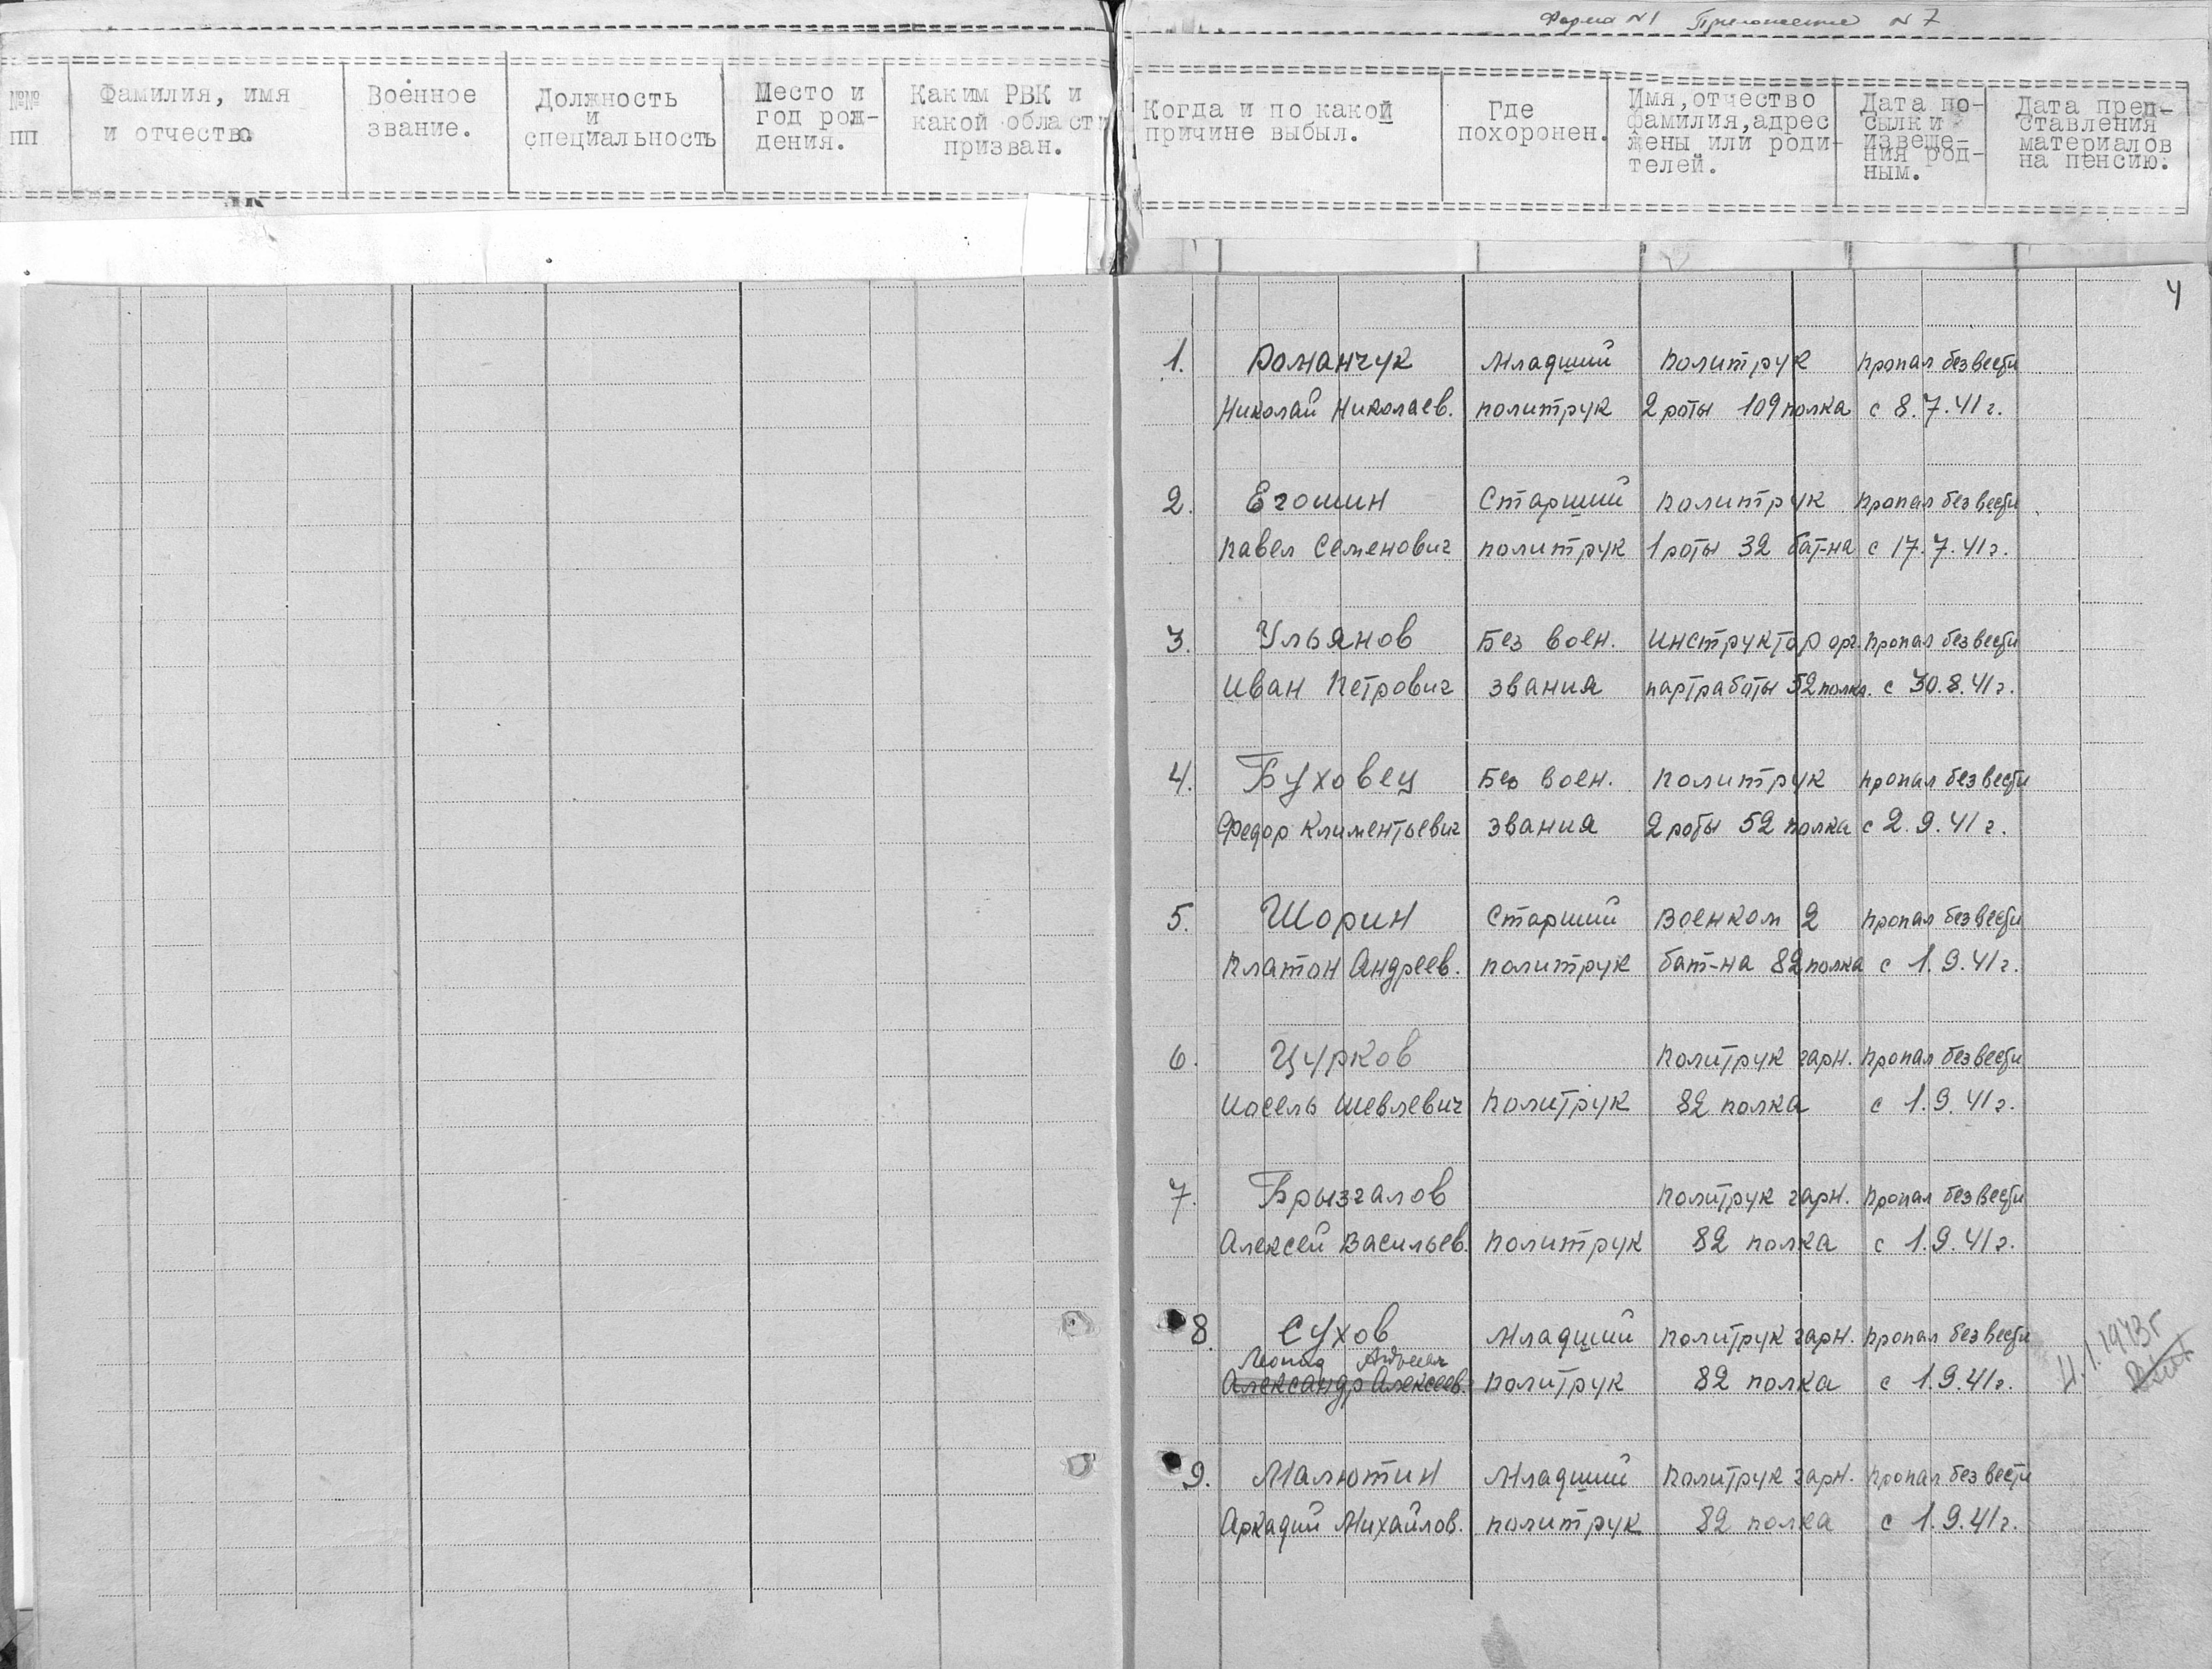 Форма №1 Приложение №7
№№ пп
Фамилия, имя и отчество
Военное звание.
Должность и специальность
Место и год рождения.
Каким РВК и какой области призван.
Когда и по какой причине выбыл.
Где похоронен.
Имя, отчество фамилия, адрес жены или родителей.
Дата посылки извещения родным.
Дата представления материалов на пенсию.
4
1. Романчук Младший политрук пропал без вести
Николай Николаев. политрук 2 роты 109 полка с 8.7.41 г.
2. Егошин Старший политрук пропал без вести
Павел Семенович политрук 1 роты 32 бат-на с 17.7.41 г.
3. Ульянов Без воен. инструктор орг. пропал без вести
Иван Петрович звания партработы 52 полка. с 30.8.41 г.
4. Буховец Без воен. политрук пропал без вести
Федор Климентьевич звания 2 роты 52 полка с 2.9.41 г.
5. Шорин Старший Военком 2 пропал без вести
Платон Андреев. политрук бат-на 82 полка с 1.9.41 г.
6. Цурков политрук гарн. пропал без вести
Иосель Шевлевич политрук 82 полка с 1.9.41 г.
7. Брызгалов политрук гарн. пропал без вести
Алексей Васильев. политрук 82 полка с 1.9.41 г.
8. Сухов Младший политрук гарн. пропал без вести
Леонид
Александр Алексеев. политрук 82 полка с 1.9.41 г.
1943 г
9. Малютин Младший политрук гарн. пропал без вести
Аркадий Михайлов. политрук 82 полка с 1.9.41 г.